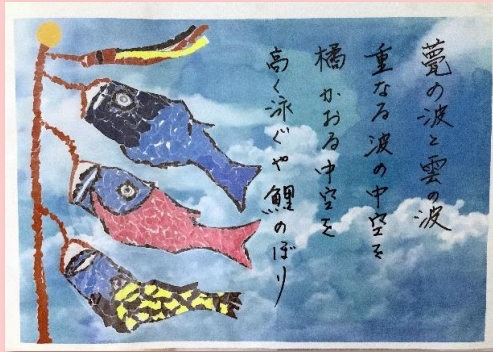 甍の波と雲の波
重なる波の中空を
橘かおる中空を
高く泳ぐや鯉のぼり